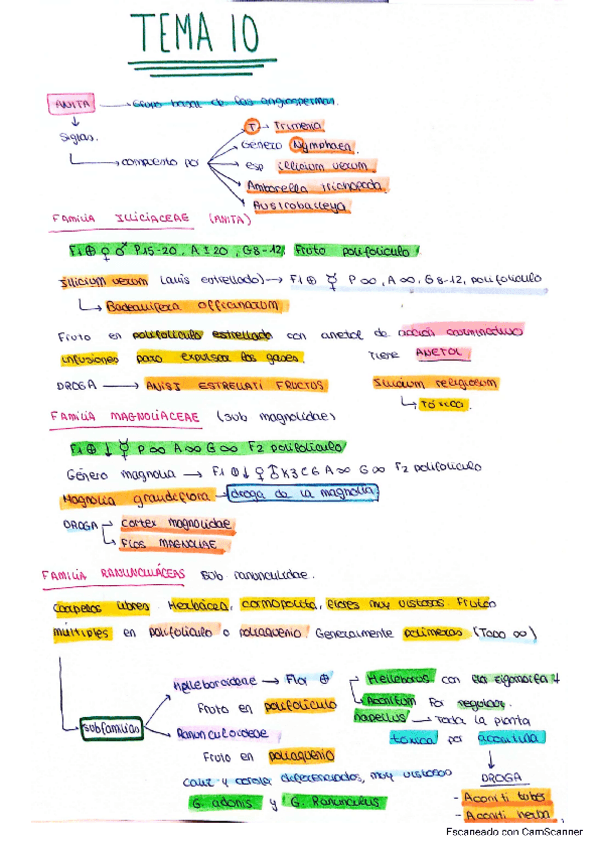 TEMA 10
ANITA → Grupo basal de las angiospermas.
↓
Siglas.
→ compuesto por
T → Trimenia
Género Nymphaea
esp illicium verum
Amborella trichopoda
Austrobaileya
FAMILIA ILLICIACEAE (ANITA)
P15-20, A±20, G8-12, Fruto polifolículo
illicium verum (anis estrellado) → P∞, A∞, G8-12, polifolículo
↳ Badianifera officinarum
Fruto en polifolículo estrellado con anetol de acción carminativo
infusiones para expulsar los gases. Tiene ANETOL
DROGA → ANISI ESTRELLATI FRUCTUS illicium religiosum
↳ TÓXICO.
FAMILIA MAGNOLIACEAE (sub magnolidae)
P∞ A∞ G∞ F2 polifolículo
Género magnolia → K3 C6 A∞ G∞ F2 polifolículo
Magnolia grandiflora → droga de la magnolia
DROGA → Cortex magnolidae
↳ FLOS MAGNOLIAE
FAMILIA RANUNCULÁCEAS sub ranunculidae.
Carpelos libres. Herbácea, cosmopolita, flores muy vistosas. Frutos
múltiples en polifolículo o poliaquenio. Generalmente polímeras (Todo ∞)
subfamilias
Helleboroideae → Flor ⊕
Fruto en polifolículo
Helleborus con flor zigomorfa
Aconitum
napellus → Toda la planta
tóxica por aconitina
Ranunculoideae
Fruto en poliaquenio
Caliz y corola diferenciados, muy vistosos
G. adonis y G. Ranunculus
DROGA
- Aconiti tuber
- Aconiti herba
Escaneado con CamScanner